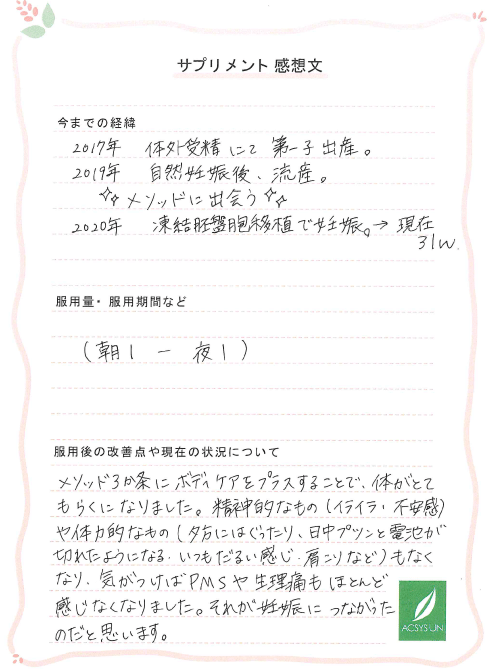 サプリメント 感想文
今までの経緯
2017年 体外受精にて第一子出産。
2019年 自然妊娠後、流産。
メソッドに出会う
2020年 凍結胚盤胞移植で妊娠。→ 現在
31w.
服用量・服用期間など
(朝1 ー 夜1)
服用後の改善点や現在の状況について
メソッド3か条にボディケアをプラスすることで、体がとて
もらくになりました。精神的なもの(イライラ・不安感)
や体力的なもの(夕方にはぐったり、日中プツンと電池が
切れたようになる・いつもだるい感じ・肩こりなど)もなく
なり、気がつけばPMSや生理痛もほとんど
感じなくなりました。それが妊娠につながった
のだと思います。
ACSYSUN